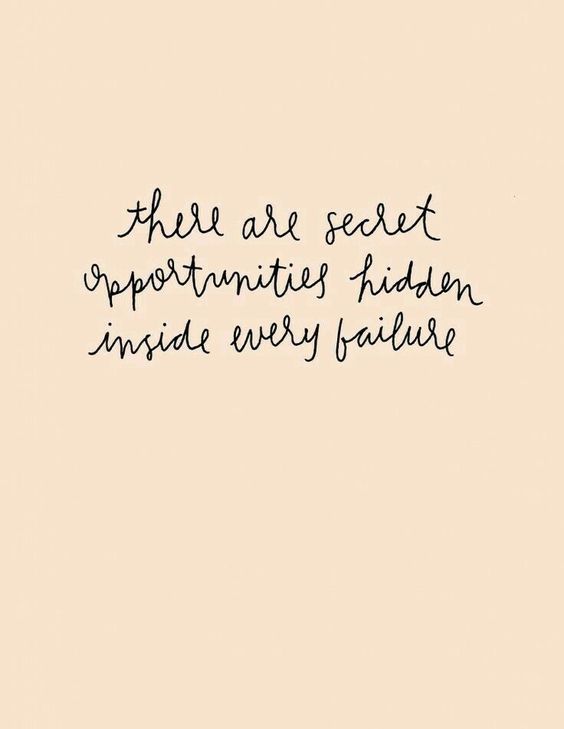 there are secret
opportunities hidden
inside every failure